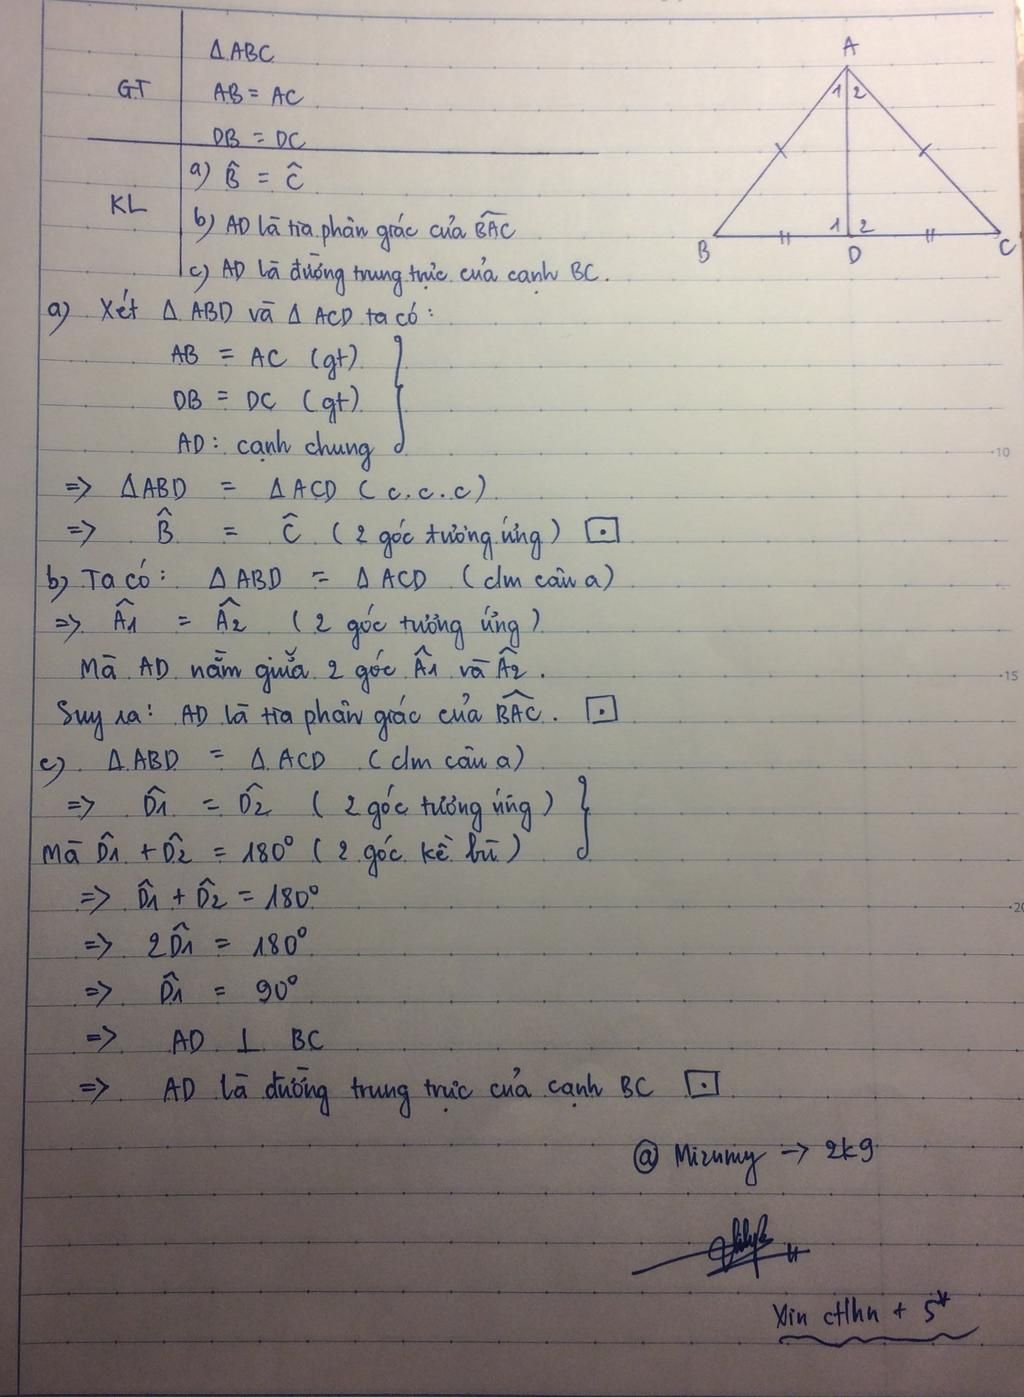 GT
ΔABC
AB = AC
DB = DC
KL
a) B̂ = Ĉ
b) AD là tia phân giác của B̂AC
c) AD là đường trung trực của cạnh BC.
A
1 2
B
1 2
D
C
a) Xét Δ ABD và Δ ACD ta có:
AB = AC (gt)
DB = DC (gt)
AD: cạnh chung
=> ΔABD = ΔACD (c.c.c)
=> B̂ = Ĉ (2 góc tương ứng)
b) Ta có: ΔABD = ΔACD (cm câu a)
=> Â1 = Â2 (2 góc tương ứng)
Mà AD nằm giữa 2 góc Â1 và Â2.
Suy ra: AD là tia phân giác của B̂AC.
c) ΔABD = ΔACD (cm câu a)
=> D̂1 = D̂2 (2 góc tương ứng)
Mà D̂1 + D̂2 = 180° (2 góc kề bù)
=> D̂1 + D̂2 = 180°
=> 2D̂1 = 180°
=> D̂1 = 90°
=> AD ⊥ BC
=> AD là đường trung trực của cạnh BC
@ Mizumy -> 2k9
Xin ctlhn + 5*
10
15
20